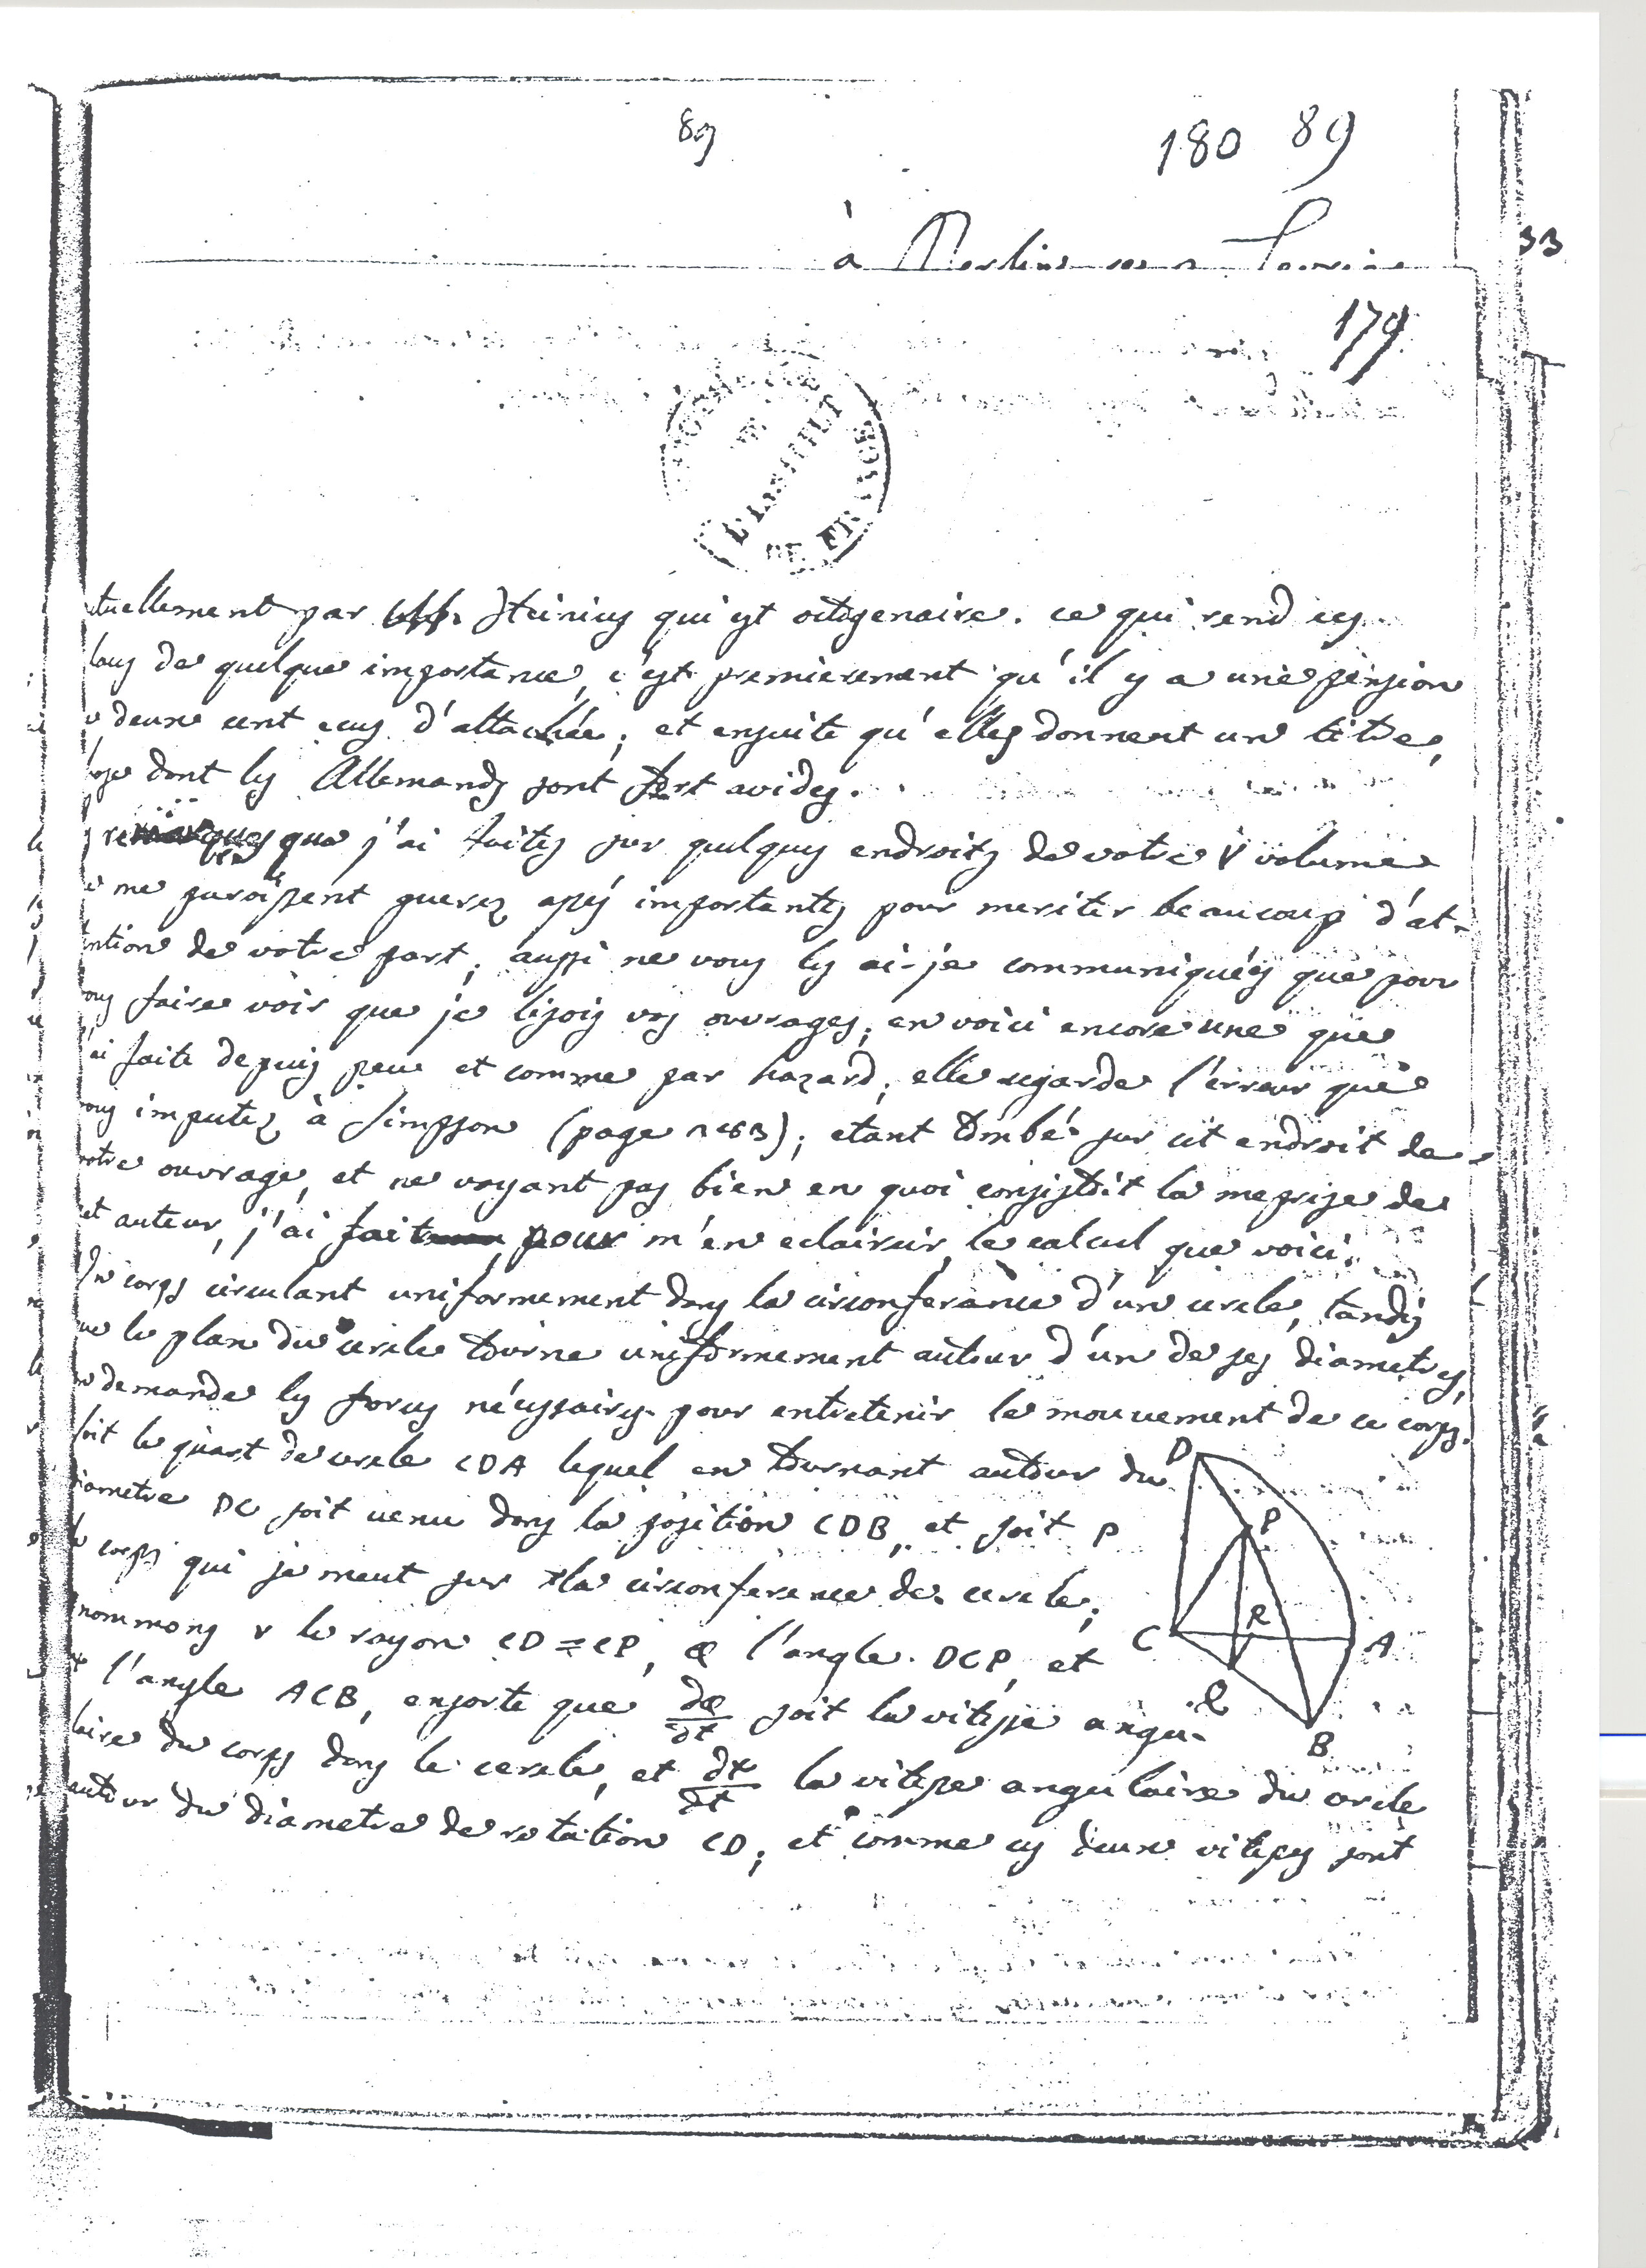 89
180 89
à Berlin
33
179
DE L'INSTITUT
DE FRANCE
tuellement par Steinius qui est octogenaire. ce qui rend ces
de quelque importance, c'est premierement qu'il y a une pension
deux cent ecus d'attachée; et ensuite qu'elles donnent un titre,
dont les Allemands sont fort avides.
remarques que j'ai faites sur quelques endroits de votre V volume
me paroissent guerez assés importantes pour meriter beaucoup d'at-
ntion de votre part; aussi ne vous les ai-je communiquées que pour
ous faire voir que je lisois vos ouvrages; en voici encore une que
'ai faite depuis peu et comme par hazard; elle regarde l'erreur que
ous imputez à Simpson (page 263); etant tombé sur cet endroit de
otre ouvrage, et ne voyant pas bien en quoi consistoit la meprise de
et auteur, j'ai fait pour m'en eclaircir, le calcul que voici.
Un corps circulant uniformement dans la circonference d'un cercle, tandis
ue le plan du cercle tourne uniformement autour d'un de ses diametres,
on demande les forces nécessaires pour entretenir le mouvement de ce corps.
soit le quart de cercle CDA lequel en tournant autour du
iametre DC soit venu dans la position CDB, et soit P
le corps qui se meut sur la circonference de cercle;
nommons r le rayon CD = CP, φ l'angle DCP, et
ψ l'angle ACB, ensorte que dφ/dt soit la vitesse angu-
laire du corps dans le cercle, et dψ/dt la vitesse angulaire du cercle
autour du diametre de rotation CD; et comme ces deux vitesses sont
D
P
R
C
A
Q
B